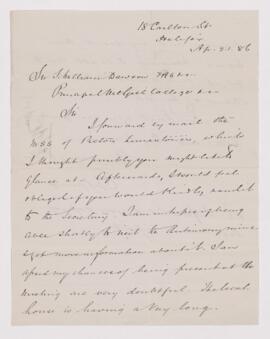 18 Carlton St
Halifax
Ap. 21. 86
Sir J. William Dawson
Principal McGill College
Sir
I forward by mail the
MSS of
I thought possibly you might like to
glance at - Afterwards, I would feel
obliged if you would kindly send it
to the Secretary. I am in hopes of being
able shortly to visit the Antimony mine
& get more information about it. I am
afraid my chances of being present at the
meeting are very doubtful. The local
house is having a very long